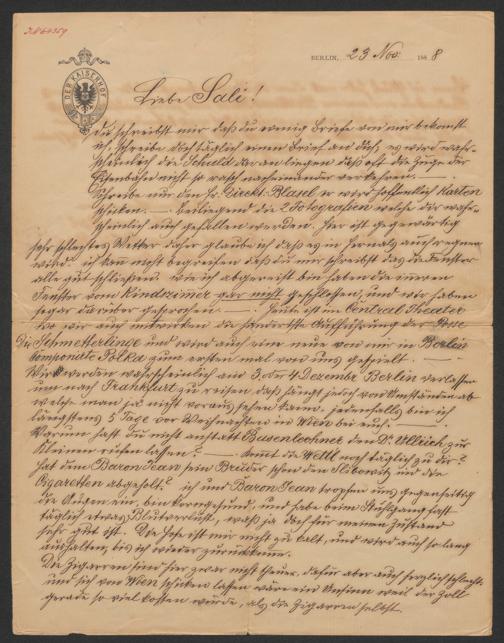 DER KAISERHOF
BERLIN, 23 Nov. 1888
Liebe Sali!
Du schreibst mir daß du wenig briefe von mir bekomst
ich schreibe doch täglich einen brief an dich, es wird wahr-
scheinlich die Schuld daran liegen daß oft die Züge der
Eisenbahn nicht so rasch nacheinander verkehren. —
Schreibe nur den Hr. Direkt. Blasel er wird hoffentlich Karten
schicken. — beiliegend die 2 Fotografien welche dir wahr-
scheinlich auch gefallen werden. Hier ist gegenwärtig
sehr schlechtes Wetter daher glaube ich daß es in Hernals auch regnen
wird. ich kan nicht begreifen daß du mir schreibst das die Fenster
alle gut schließen. wie ich abgereist bin haben die inneren
Fenster vom Kindzimer gar nicht geschlossen, und wir haben
sogar darüber gesprochen. — Heute ist im Central Theater
wo wir auch mitwirken die hundertste Aufführung der Posse
Die Schmetterlinge und wird auch eine neue von mir in Berlin
componirte Polka zum ersten mal von uns gespielt. —
Wir werden wahrscheinlich am 3. oder 4 Dezembr Berlin verlassen
um nach Frankfurt zu reisen daß hängt jedoch von Umständen ab
welche man ja nicht voraus sehen kann. jedenfalls bin ich
längstens 5 Tage vor Weihnachten in Wien bei euch. —
Warum hast du nicht anstatt Busenlechner den Dr. Ullrich zur
Kleinen rufen lassen? — komt die Wettl noch täglich zu dir?
Hat dem Baron Jean sein Bruder schon den Slibowitz und die
Cigaretten abgeholt? ich und Baron Jean tropfen uns gegenseitig
die Augen ein, bin kerngesund, und habe beim Stuhlgang fast
täglich etwas Blutverlust, waß ja doch für meinen Zustand
sehr gut ist. Die Hose ist mir nicht zu kalt, und wird auch so lang
aushalten, bis ich wieder zurückkume.
Die Zigarren sind hier zwar nicht theuer, dafür aber auch herzlich schlecht
und sich von Wien schicken lassen wäre ein Unsinn weil der Zoll
gerade so viel kosten würde, als die Zigarren selbst.